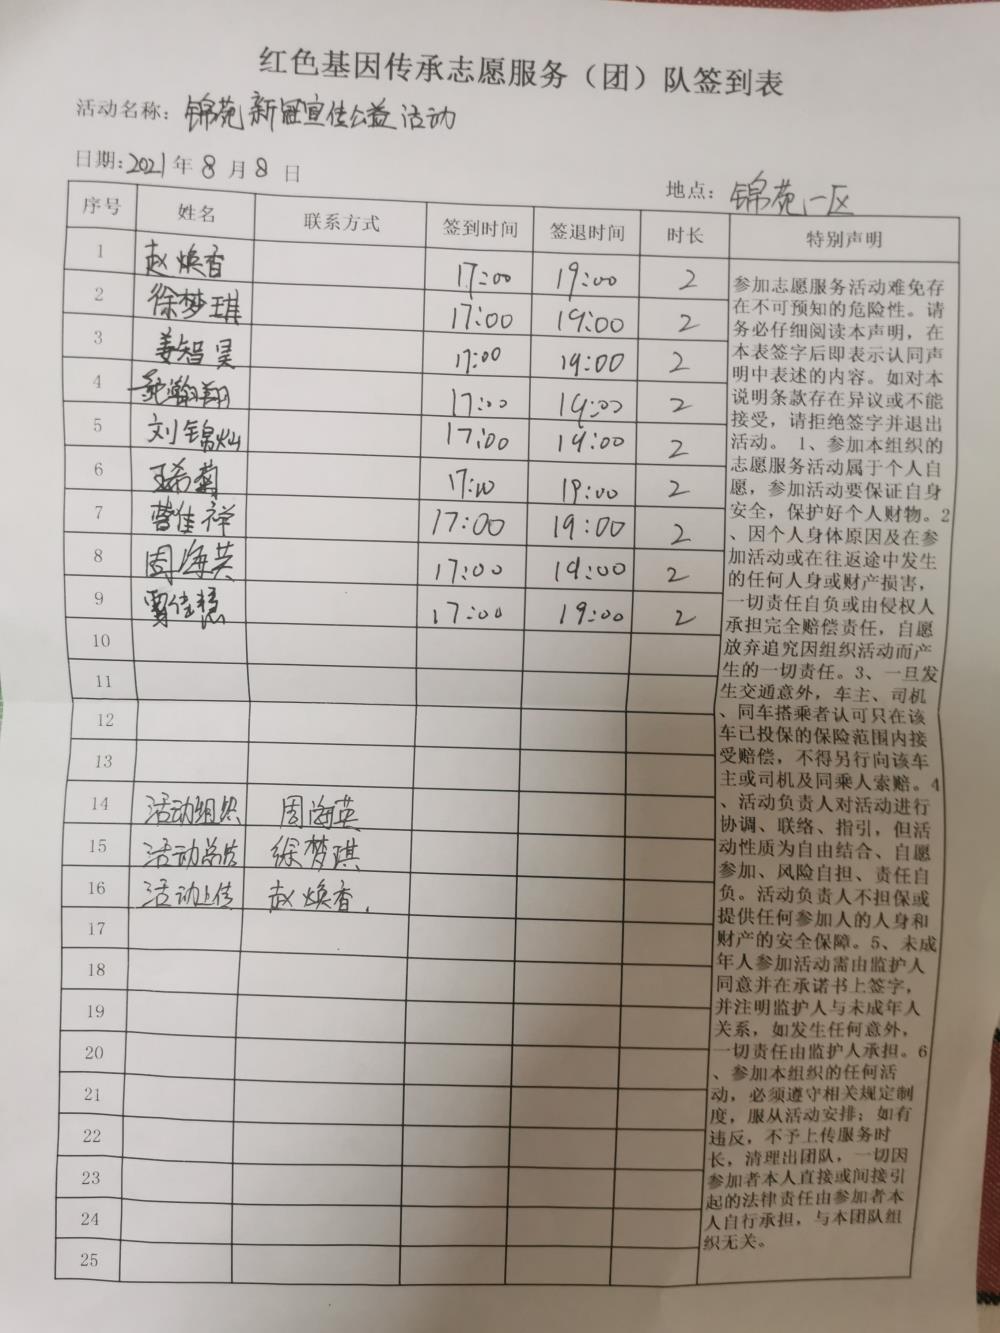 红色基因传承志愿服务（团）队签到表
活动名称：锦苑新冠宣传公益活动
日期：2021年8月8日
地点：锦苑一区
序号 姓名 联系方式 签到时间 签退时间 时长 特别声明
1 赵焕香 17:00 19:00 2
2 徐梦琪 17:00 19:00 2
3 姜智昊 17:00 19:00 2
4 瀚翔 17:00 19:00 2
5 刘锦灿 17:00 19:00 2
6 王希菊 17:00 19:00 2
7 曹佳祥 17:00 19:00 2
8 周海英 17:00 19:00 2
9 佳慧 17:00 19:00 2
10
11
12
13
14 活动组织 周海英
15 活动总结 徐梦琪
16 活动上传 赵焕香.
17
18
19
20
21
22
23
24
25
参加志愿服务活动难免存
在不可预知的危险性。请
务必仔细阅读本声明，在
本表签字后即表示认同声
明中表述的内容。如对本
说明条款存在异议或不能
接受，请拒绝签字并退出
活动。 1、参加本组织的
志愿服务活动属于个人自
愿，参加活动要保证自身
安全，保护好个人财物。2
、因个人身体原因及在参
加活动或在往返途中发生
的任何人身或财产损害，
一切责任自负或由侵权人
承担完全赔偿责任，自愿
放弃追究因组织活动而产
生的一切责任。3、一旦发
生交通意外，车主、司机
、同车搭乘者认可只在该
车已投保的保险范围内接
受赔偿，不得另行向该车
主或司机及同乘人索赔。4
、活动负责人对活动进行
协调、联络、指引，但活
动性质为自由结合、自愿
参加、风险自担、责任自
负。活动负责人不担保或
提供任何参加人的人身和
财产的安全保障。5、未成
年人参加活动需由监护人
同意并在承诺书上签字，
并注明监护人与未成年人
关系，如发生任何意外，
一切责任由监护人承担。6
、参加本组织的任何活
动，必须遵守相关规定制
度，服从活动安排；如有
违反，不予上传服务时
长，清理出团队，一切因
参加者本人直接或间接引
起的法律责任由参加者本
人自行承担，与本团队组
织无关。